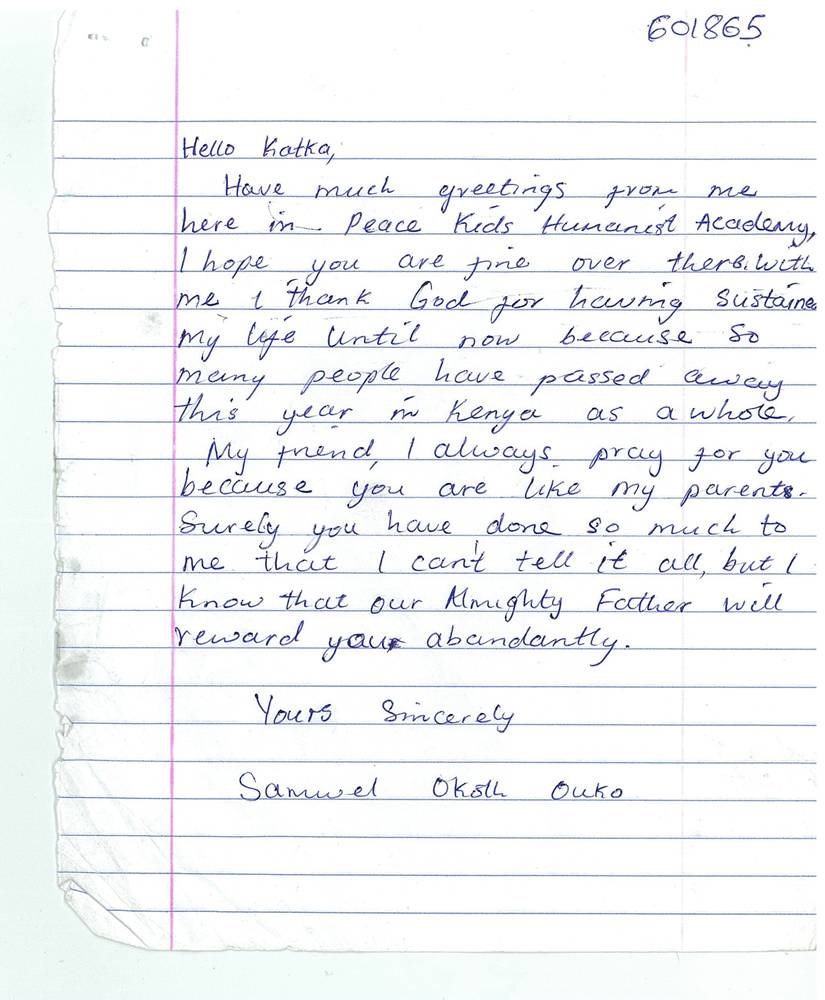 601865
Hello Katka,
Have much greetings from me
here in Peace Kids Humanist Academy,
I hope you are fine over there. With
me I thank God for having Sustaine
my life Until now because so
many people have passed away
this year in Kenya as a whole.
My friend, I always pray for you
because you are like my parents.
Surely you have done so much to
me that I can't tell it all, but I
know that our Almighty Father will
reward you abandantly.
Yours Sincerely
Samwel Okoth Ouko